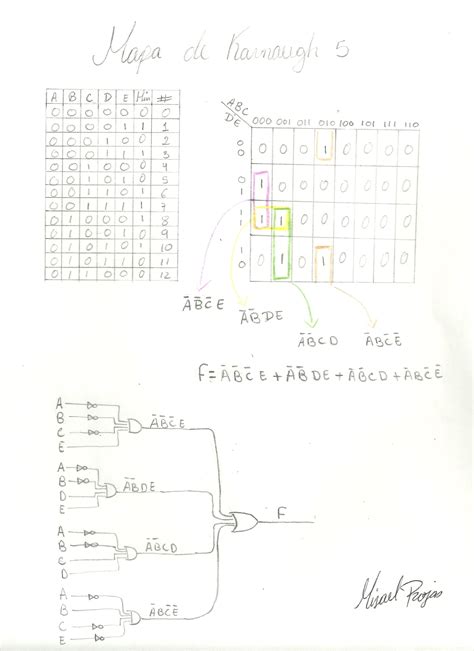 Mapa de Karnaugh 5
A B C D E Min #
0 0 0 0 0 0 0
0 0 0 0 1 1 1
0 0 0 1 0 0 2
0 0 0 1 1 1 3
0 0 1 0 0 0 4
0 0 1 0 1 0 5
0 0 1 1 0 1 6
0 0 1 1 1 1 7
0 1 0 0 0 1 8
0 1 0 0 1 0 9
0 1 0 1 0 1 10
0 1 0 1 1 0 11
0 1 1 0 0 0 12
ABC
DE 000 001 011 010 100 101 111 110
00 0 0 0 1 0 0 0 0
01 1 0 0 0 0 0 0 0
11 1 1 0 0 0 0 0 0
10 0 1 0 1 0 0 0 0
A̅B̅C̅E A̅B̅DE A̅B̅CD A̅BC̅E̅
F=A̅B̅C̅E+A̅B̅DE+A̅B̅CD+A̅BC̅E̅
A
B
C
E
A̅B̅C̅E
A
B
D
E
A̅B̅DE
F
A
B
C
D
A̅B̅CD
A
B
C
E
A̅BC̅E̅
Misael Rojas